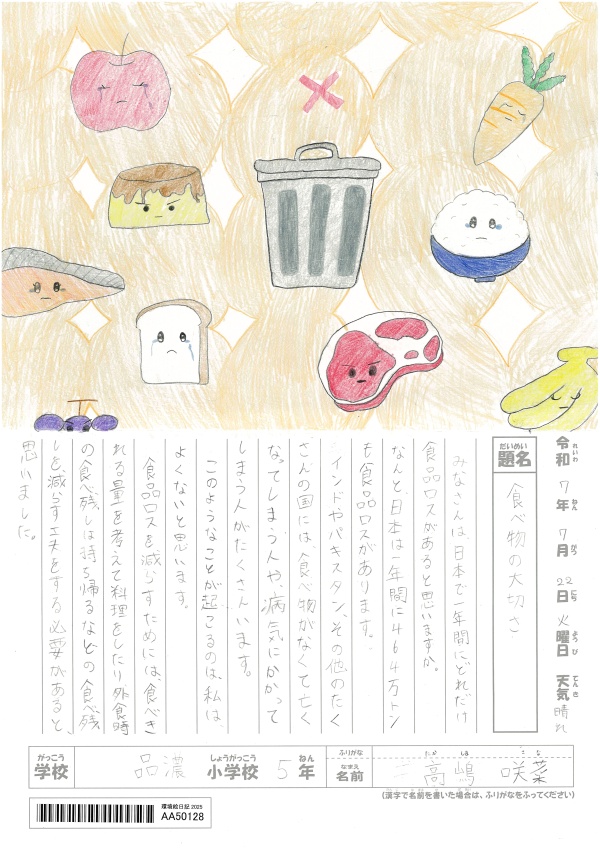 令和7年7月22日火曜日 天気 晴れ
れいわ ねん がつ にち ようび てんき
だいめい
題名 食べ物の大切さ
みなさんは、日本で一年間に、どれだけ
食品ロスがあると思いますか。
なんと、日本は一年間に464万トン
も食品ロスがあります。
インドやパキスタン、その他のたく
さんの国には、食べ物がなくて亡く
なってしまう人や、病気にかかって
しまう人がたくさんいます。
このようなことが起こるのは、私は、
よくないと思います。
食品ロスを減らすためには、食べき
れる量を考えて料理をしたり、外食時
の食べ残しは持ち帰るなどの食べ残
しを、減らす工夫をする必要があると、
思いました。
がっこう しょうがっこう ねん
学校 品濃 小学校 5年
ふりがな たか しま さな
なまえ
名前 高嶋 咲菜
(漢字で名前を書いた場合は、ふりがなをふってください)
環境絵日記2025
AA50128